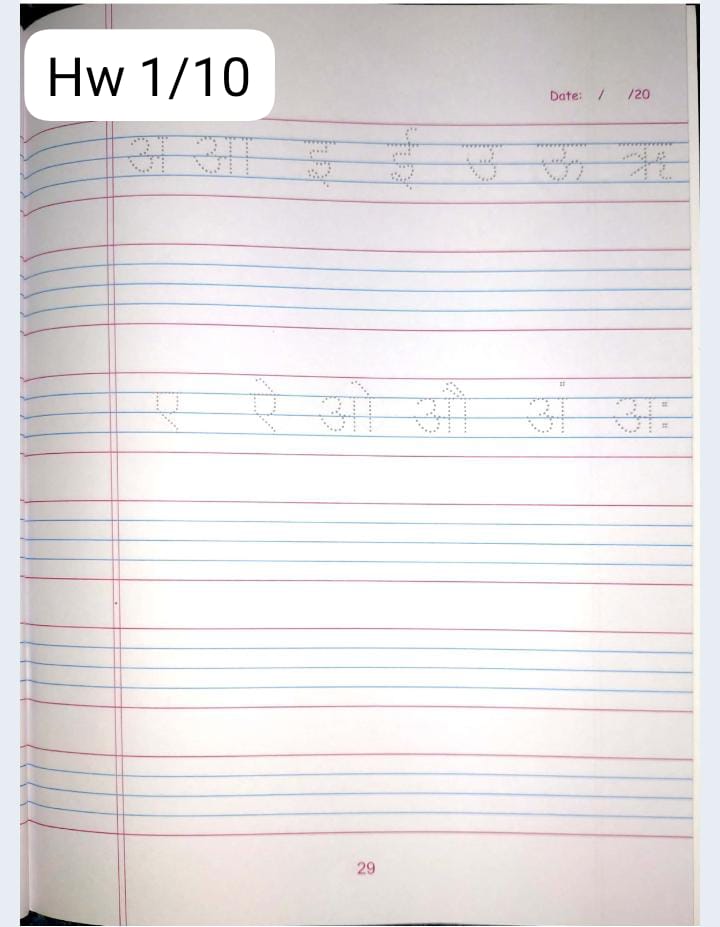 Hw 1/10
Date: / /20
अ आ इ ई उ ऊ ऋ
ए ऐ ओ औ अं अः
29